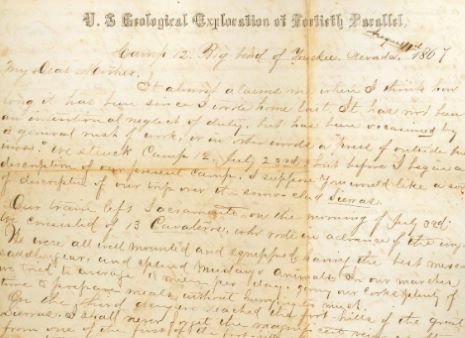 U. S Geological Exploration of Fortieth Parallel.
Camp 12. Big bend of Truckee, Nevada, 1867
My Dear Mother,
It almost alarms me when I think how
long it has been since I wrote home last. It has not been
an intentional neglect of duty, but has been occasioned by
a general rush of work, or in other words a press of outside busi
ness. We struck Camp 12, July 23rd, but before I begin a
description of our present camp, I suppose you would like a sort
of description of our trip over the snow clad Sierras.
Our train left Sacramento on the morning of July 3rd.
We consisted of 13 Cavaleros, who rode in advance of the
We were all well mounted and equipped having the best
saddles, and splendid Mustang Animals. In our marches
we tried to average miles per day, giving our cooks plenty of
time to prepare meals, without hurrying too much.
On the third day we reached the foot hills of the great
Sierras. I shall never forget the magnificent
from one of the first of the foot